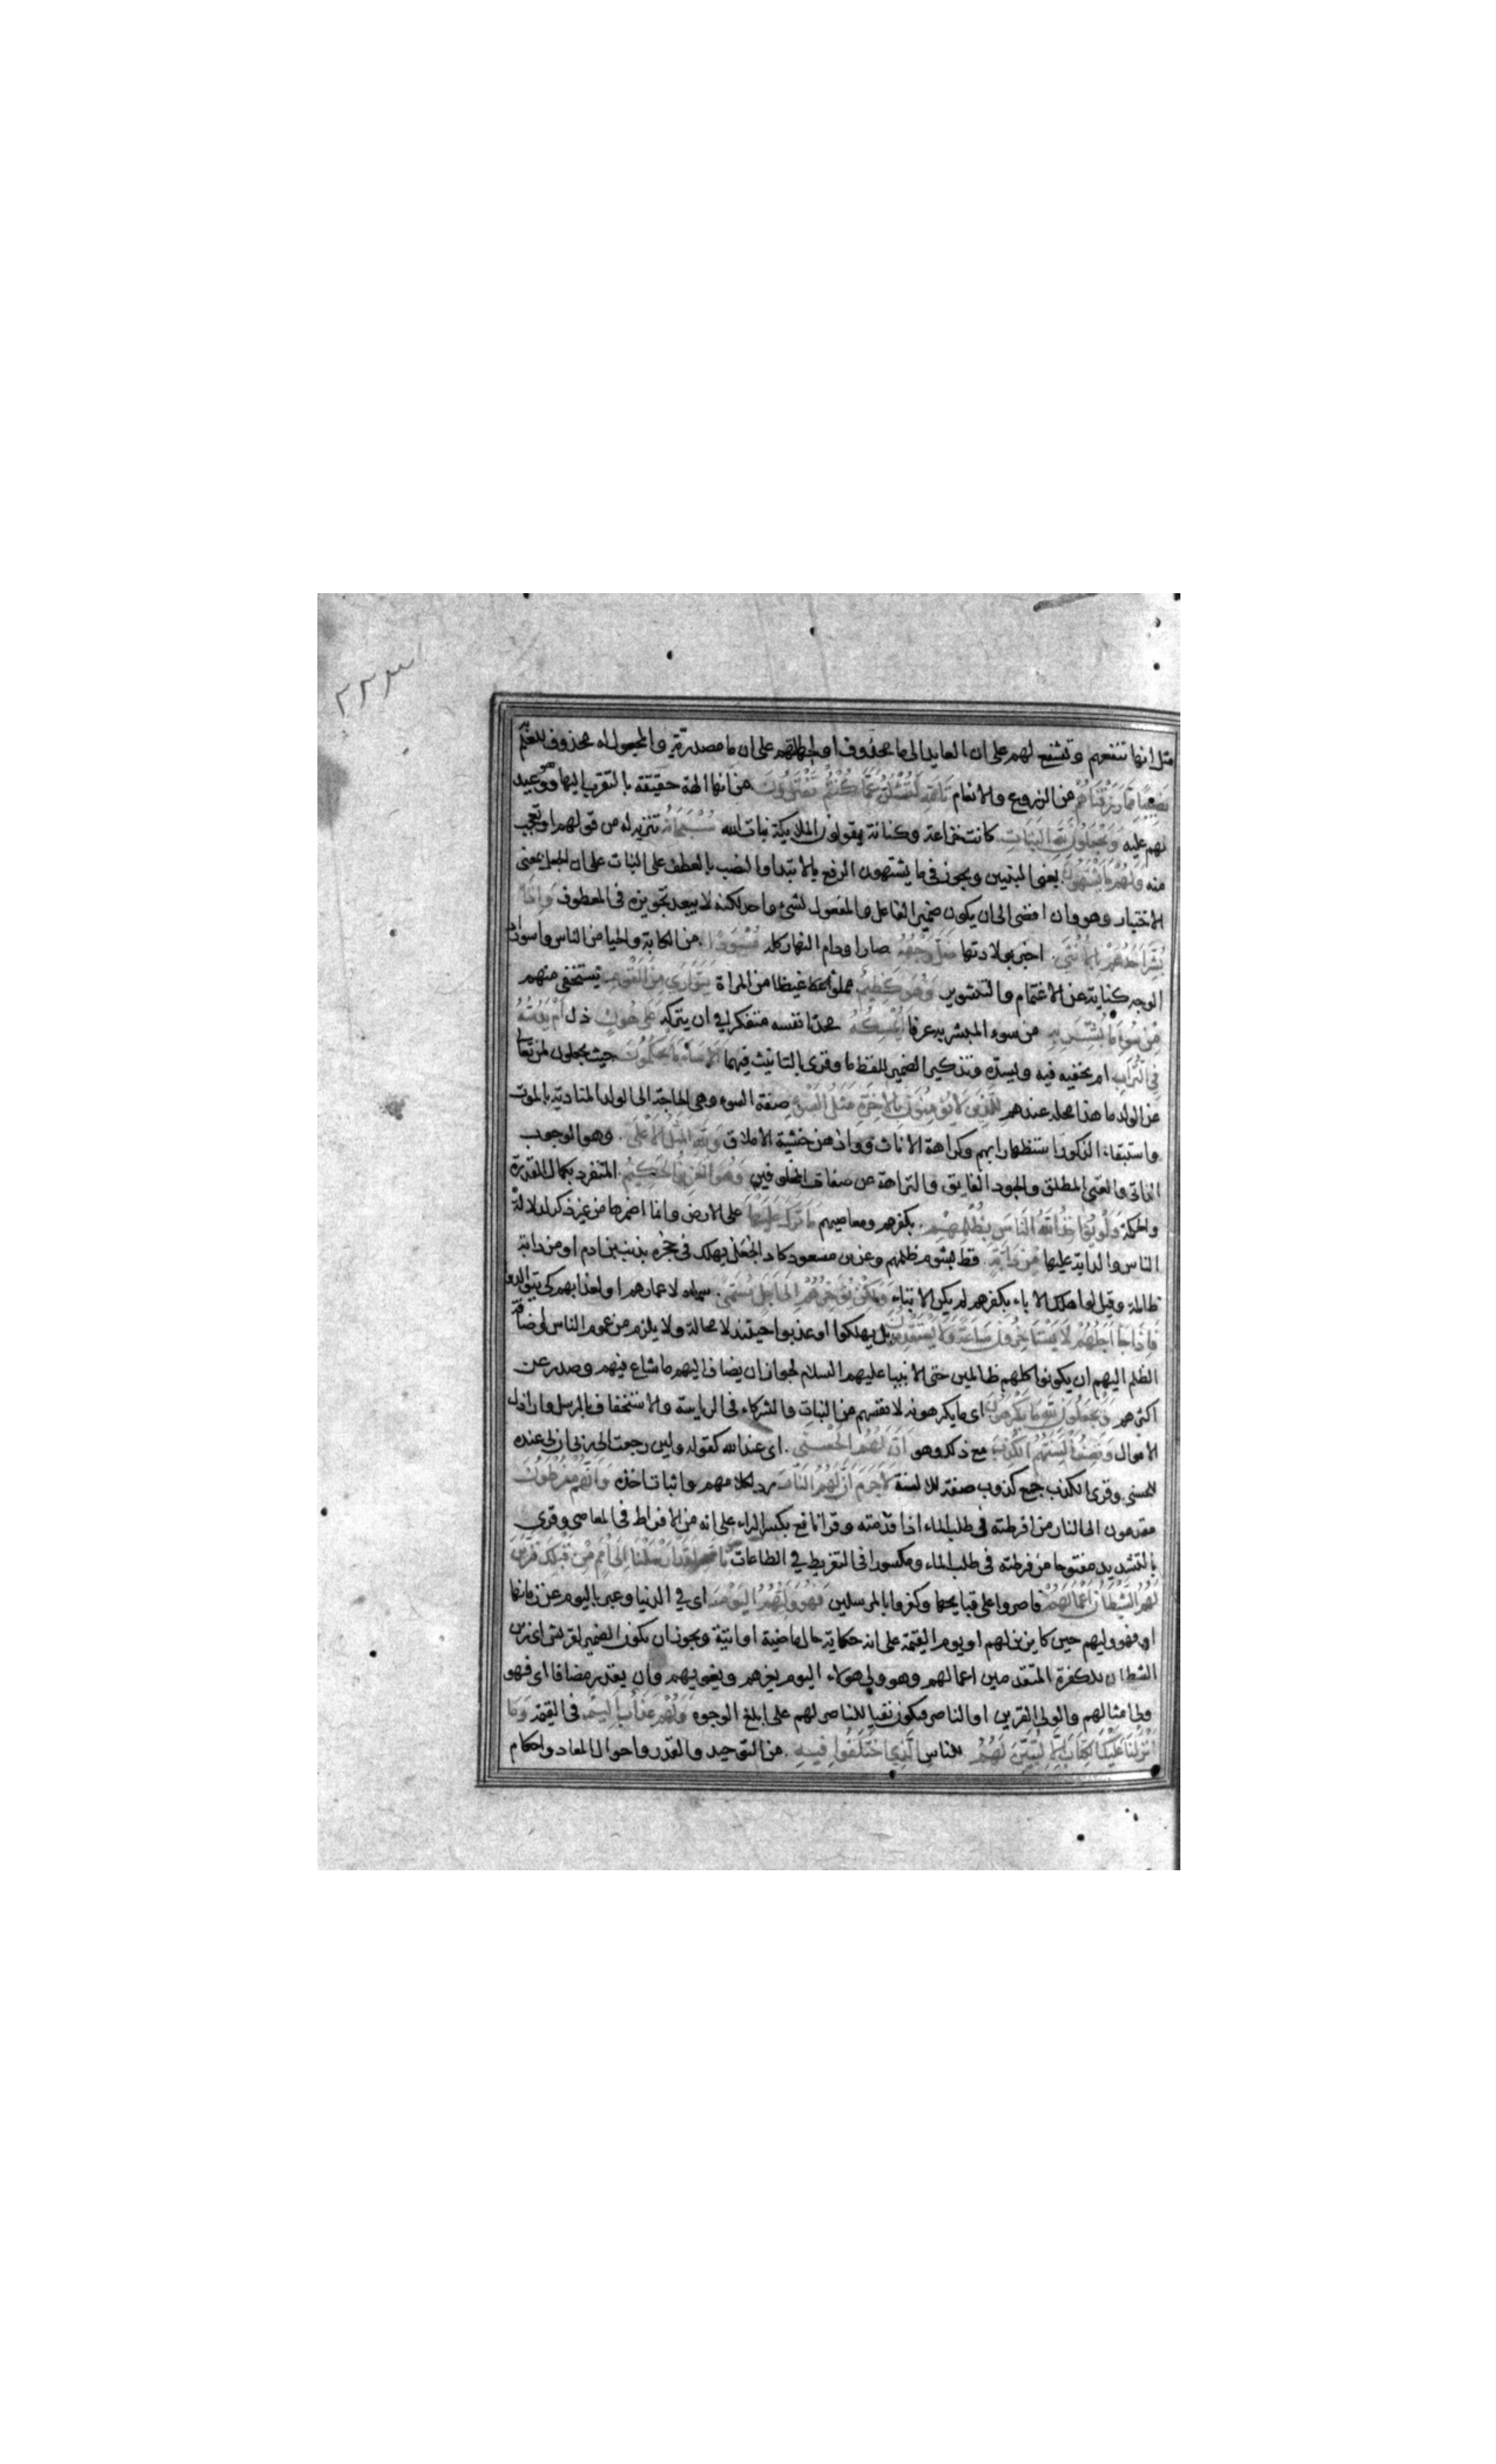 ٢٢٣
مثل انها تنفعهم وتشفع لهم على ان العايد الى ما محذوف او لجهلهم على ان ما مصدرية والمجعول له محذوف للعلم
نصيبا مما رزقناهم من الزروع والانعام تالله لتسئلن عما كنتم تفترون من انها الهة حقيقة بالتقرب اليها وهو وعيد
لهم عليه ويجعلون لله البنات كانت خزاعة وكنانة يقولون الملايكة بنات الله سبحانه تنزيه له من قولهم او تعجب
منه ولهم ما يشتهون يعنى البنين ويجوز فى ما يشتهون الرفع بالابتدا والنصب بالعطف على البنات على ان الجعل بمعنى
الاختيار وهو وان افضى الى ان يكون ضمير الفاعل والمفعول لشىء واحد لكنه لا يبعد تجويزه فى المعطوف واذا
بشر احدهم بالانثى اخبر بولادتها ظل وجهه صار او دام النهار كله مسودا من الكابة والحيا من الناس واسوداد
الوجه كناية عن الاغتمام والتشوير وهو كظيم مملو غيظا من المراة يتوارى من القوم يستخفى منهم
من سوء ما بشر به من سوء المبشر به عرفا ايمسكه محدثا نفسه متفكرا فى ان يتركه على هون ذل ام يدسه
فى التراب ام يخفيه فيه وليئده وتذكير الضمير للفظ ما وقرى بالتانيث فيهما الا ساء ما يحكمون حيث يجعلون لمن تعالى
عن الولد ما هذا محله عندهم للذين لا يؤمنون بالاخرة مثل السوء صفة السوء وهى الحاجة الى الولد المنادية بالموت
واستبقاء الذكور استظهارا بهم وكراهة الاناث ووادهن خشية الاملاق ولله المثل الاعلى وهو الوجوب
الذاتى والغنى المطلق والجود الفايق والنزاهة عن صفات المخلوقين وهو العزيز الحكيم المتفرد بكمال القدرة
والحكمة ولو يؤاخذ الله الناس بظلمهم بكفرهم ومعاصيهم ما ترك عليها على الارض وانما اضمرها من غير ذكر لدلالة
الناس والدابة عليها من دابة قط بشوم ظلمهم وعن بن مسعود كاد الجعل يهلك فى حجره بذنب بن ادم او من دابة
ظالمة وقيل لو اهلك الاباء بكفرهم لم يكن الابناء ولكن يؤخرهم الى اجل مسمى سماه لاعمارهم او لعذابهم كى يتوالدوا
فاذا جا اجلهم لا يستاخرون ساعة ولا يستقدمون بل يهلكوا او عذبوا حينئذ لا محالة ولا يلزم من عموم الناس واضافة
الظلم اليهم ان يكونوا كلهم ظالمين حتى الانبيا عليهم السلام لجواز ان يضاف اليهم ما شاع فيهم وصدر عن
اكثرهم ويجعلون لله ما يكرهون اى ما يكرهونه لانفسهم من البنات والشركاء فى الرياسة والاستخفاف بالرسل واراذل
الاموال وتصف السنتهم الكذب مع ذلك وهو ان لهم الحسنى اى عند الله كقوله ولين رجعت الى ربى ان لى عنده
للحسنى وقرى الكذب جمع كذوب صفة للالسنة لا جرم ان لهم النار رد لكلامهم واثبات لضده وانهم مفرطون
مقدمون الى النار من افرطته فى طلب الماء اذا قدمته وقرا نافع بكسر الراء على انه من الافراط فى المعاصى وقرى
بالتشديد مفتوحا من فرطته فى طلب الماء ومكسورا فى التفريط فى الطاعات تالله لقد ارسلنا الى امم من قبلك فزين
لهم الشيطان اعمالهم فاصروا على قبايحها وكفروا بالمرسلين فهو وليهم اليوم اى فى الدنيا وعبر باليوم عن زمانها
او فهو وليهم حين كان يزين لهم او يوم القيمة على انه حكاية حال ماضية او اتية ويجوز ان يكون الضمير لقريش اى زين
الشيطان للكفرة المتقدمين اعمالهم وهو ولى هولاء اليوم يغرهم ويغويهم وان يقدر مضاف اى فهو
ولى امثالهم والولى القرين او الناصر فيكون نفيا للناصر لهم على ابلغ الوجوه ولهم عذاب اليم فى القيمة وما
انزلنا عليك الكتاب الا لتبين لهم للناس الذى اختلفوا فيه من التوحيد والقدر واحوال المعاد واحكام